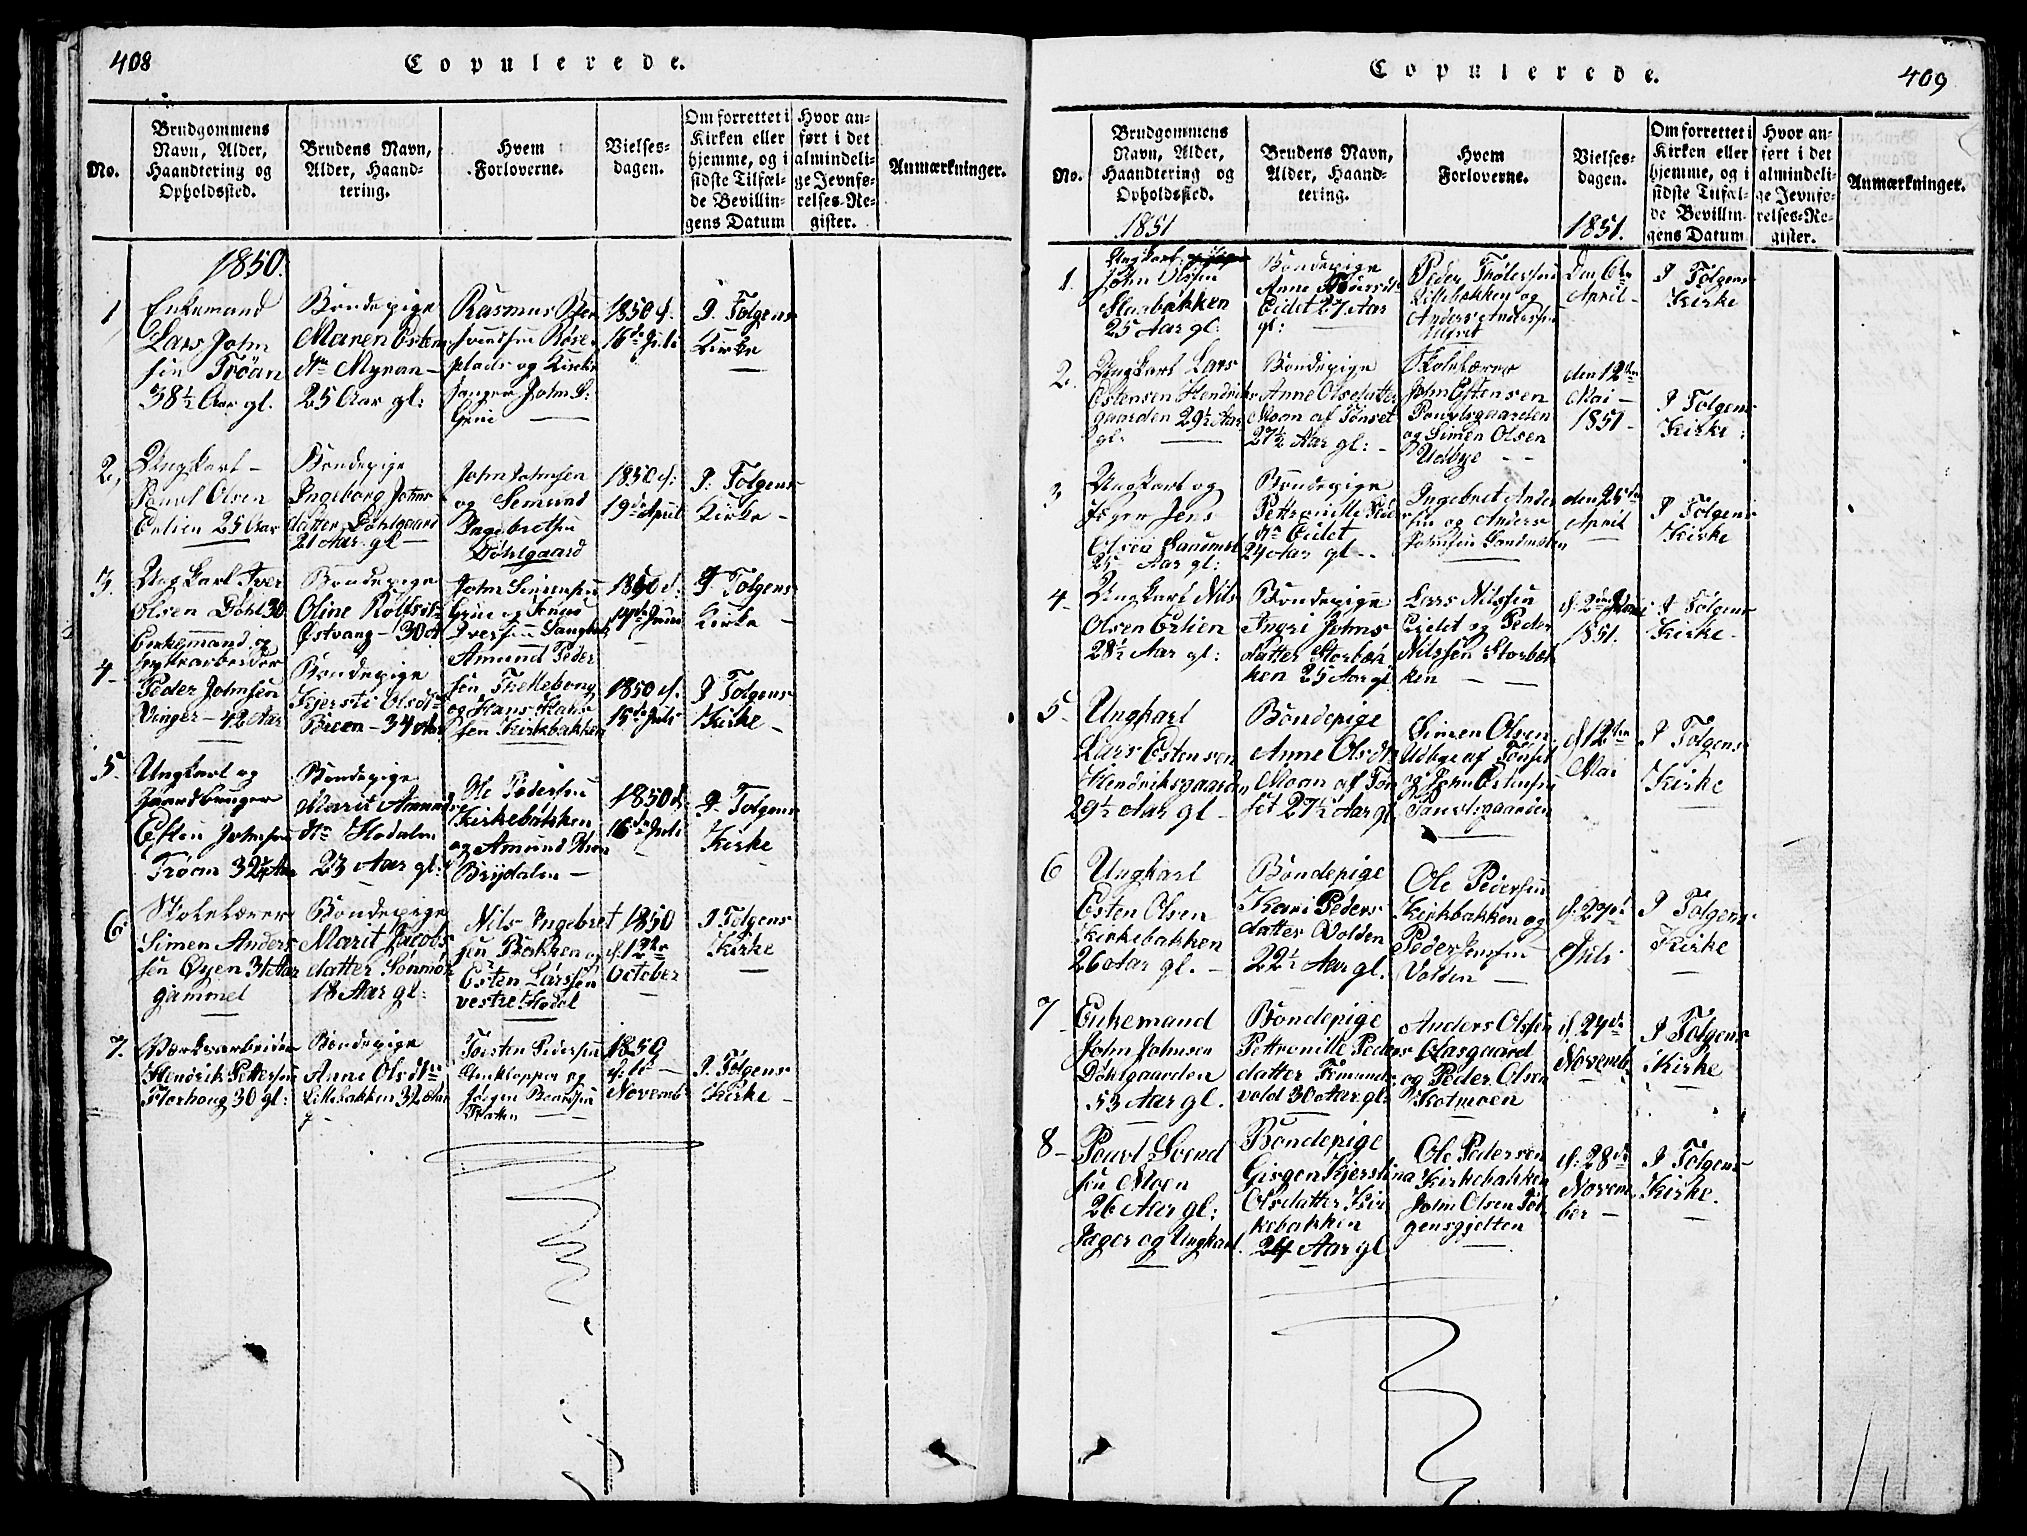 408
Copulerede.
No.
Brudgommens
Navn, Alder,
Haandtering og
Opholdssted.
Brudens Navn,
Alder, Haand-
tering.
Hvem
Forloverne.
Vielses-
dagen.
Om forrettet i
Kirken eller
hjemme, og i
sidste Tilfæl-
de Bevillin-
gens Datum
Hvor an-
ført i det
almindeli-
ge Jevnfø-
relses-Re-
gister.
Anmærkninger.
1850.
1
Enkemand
Lars John
sen Trøan
38½ Aar gl.
Bondepige
Maren Esten
dtr Myran -
25 Aar gl:
Rasmus
og Kirke
sanger John S:
1850 d.
16de Juli
I Tolgens
Kirke
2,
Ungkarl -
Povel Olsen
Erlien 25 Aar
Bondepige
Ingeborg Johns
datter Døhlgaard
21 Aar gl
John Johnsen
og Semund
Ingebrethsen
Døhlgaard
1850 d.
19de April
I: Tolgens
Kirke -
3.
Ungkarl Iver
Olsen Døhl 30
Bondepige
Oline Rolfsdtr
Østvang - 30 A
John Simensen
Grue og Jonas
Iversen
1850 d.
14de Juni
I Tolgens
Kirke -
4-
Enkemand og
Hyttearbeider
Peder Johnsen
Vinger - 42 Aar
Bondepige
Kjersti Olsdtr
Breen - 34 Aar
Amund Peder
sen
og Hans Hans
sen Kirkbakken
1850 d.
15de Juli
I Tolgens
Kirke -
5.
Ungkarl og
Gaardbruger
Esten Johnsen
Trøan 32½ Aar
Bondepige
Marit Amunds
dtr Hodalen
23 Aar gl:
Ole Pedersen
Kirkebakken
og Amund
Brydalen -
1850 d.
16de Juli
I Tolgens
Kirke
6.
Skolelærer
Simen Anders
sen Øyen 31 Aar
gammel
Bondepige
Marit Jacobs
datter Sønmør
18 Aar gl:
Nils Ingebret
sen Bakken og
Esten Larssen
vestre Hodal
1850
d. 12te
October
I Tolgens
Kirke
7.
Værksarbeider
Hendrik Pettersen
Storhoug 30 gl:
Bondepige
Anne Olsdtr
Lillebakken 31½ Aar
Torsten Pedersen
og
Jørgen
1850
Novemb
I. Tolgens
Kirke -
Copulerede.
409
No.
Brudgommens
Navn, Alder,
Haandtering og
Opholdssted.
Brudens Navn,
Alder, Haand-
tering.
Hvem
Forloverne.
Vielses-
dagen.
Om forrettet i
Kirken eller
hjemme, og i
sidste Tilfæl-
de Bevillin-
gens Datum
Hvor an-
ført i det
almindeli-
ge Jevnfø-
relses-Re-
gister.
Anmærkninger.
1851
1851.
1.
Ungkarl
John Olssen
Storbakken
25 Aar gl:
Bondepige
Anne
Eidet 27 Aar
gl:
Peder
Lillebakken og
Anders Anderssen
Den 6te
April -
I Tolgens
Kirke
2.
Ungkarl Lars
Estensen Hendriks
gaarden 29½ Aar
gl:
Bondepige
Anne Olsdatter
Moan af Tønset
27½ Aar gl: -
Skolelærer
John Estensen
Pouvlsgaarden
og Simen Olsen
Udbye - -
den 12te
Mai -
1851 -
I Tolgens
Kirke :
3
Ungkarl og
Jæger Jens
Olsen
25 Aar gl:
Bondepige
Petronille Peder
dtr Eidet
24 Aar gl - -
Ingebret Ander
sen og Anders
Johnsen
den 25de
April
I Tolgens
Kirke
4-
Ungkarl Nils
Olsen Erlien
28½ Aar gl:
Bondepige
Ingri Johns
datter Storbæk
ken 25 Aar gl
Lars Nilssen
Eidet og Peder
Nilssen Storbæk
ken -
1851.
I Tolgens
Kirke -
5-
Ungkarl
Lars Estensen
Hendriksgaarden
29½ Aar gl -
Bondepige
Anne Olsdtr
Moan af Tøn
set 27½ Aar gl
Simen Olsen
Udbye af Tønset
og John Estensen
Pouvlsgaarden
d 12te
Mai
I Tolgens
Kirke
6
Ungkarl
Esten Olsen
Kirkebakken
26 Aar gl. -
Bondepige
Kari Peders
datter Volden
22½ Aar gl.
Ole Pedersen
Kirkbakken og
Peder Jensen
Volden -
d. 27de
Juli -
I Tolgens
Kirke
7
Enkemand
John Johnsen
Døhlgaarden
53 Aar gl.
Bondepige
Petronille Peders
datter
vold 30 Aar gl
Anders Olssen
Aasgaard
og Peder Olsen
Kotmoen
d. 24de
Novemb
I Tolgens
Kirke
8-
Pouvl Svend
sen Moen
26 Aar gl:
Jæger og Ungkarl
Bondepige
Girgen Kjerstina
Olsdatter Kir
kebakken
24 Aar gl
Ole Pedersen
Kirkebakken
John Olsen Tol
gensgjelten
d: 28de
Novem
ber -
I Tolgens
Kirke.